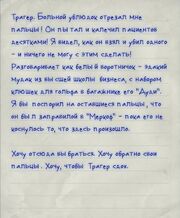 Трагер. Больной ублюдок отрезал мне
пальцы! Он пытал и калечил пациентов
десятками! Я видел, как он взял и убил одного
- и ничего не могу с этим сделать!
Разговаривает как белый воротничок - эдакий
мудак из высшей школы бизнеса, с набором
клюшек для гольфа в багажнике его "Ауди".
Я бы поспорил на оставшиеся пальцы, что
он был заправилой в "Меркоф" - пока его не
коснулось то, что здесь произошло.
Хочу отсюда выбраться. Хочу обратно свои
пальцы. Хочу, чтобы Трагер сдох.